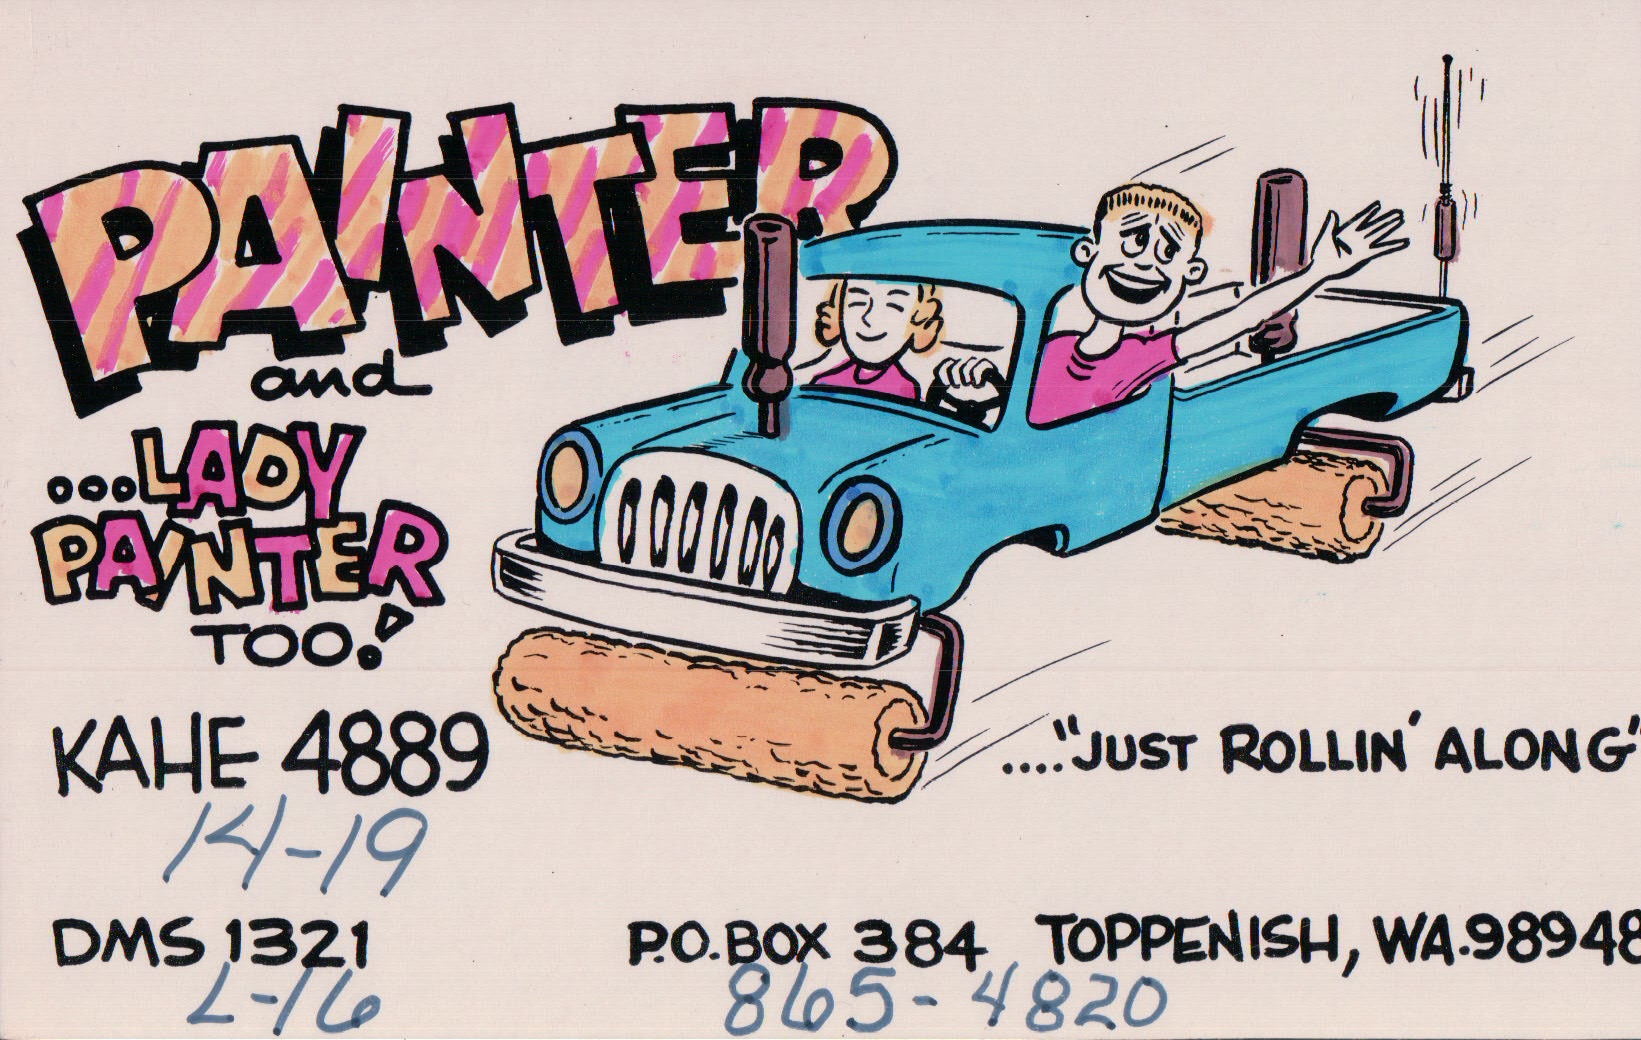 PAINTER
and
...LADY
PAINTER
TOO!
KAHE 4889
14-19
...."JUST ROLLIN' ALONG"
DMS 1321
L-16
P.O. BOX 384 TOPPENISH, WA. 98948
865-4820